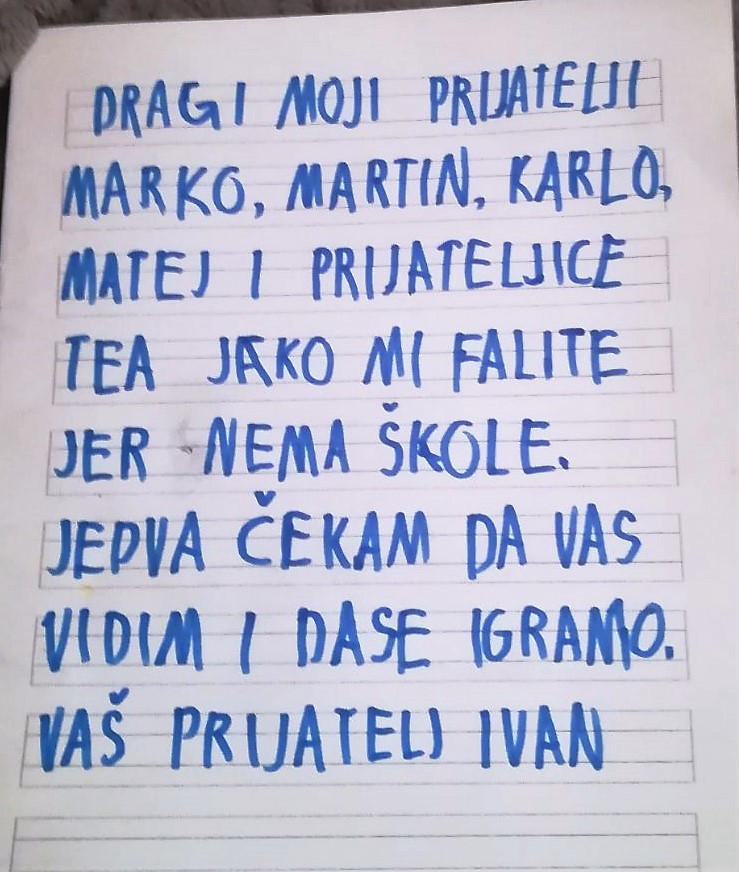 DRAGI MOJI PRIJATELJI
MARKO, MARTIN, KARLO,
MATEJ I PRIJATELJICE
TEA JAKO MI FALITE
JER NEMA ŠKOLE.
JEDVA ČEKAM DA VAS
VIDIM I DASE IGRAMO.
VAŠ PRIJATELJ IVAN